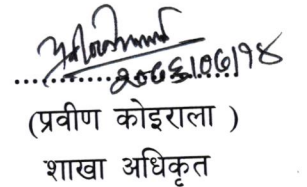 २०७६।०७।१४
(प्रवीण कोइराला )
शाखा अधिकृत